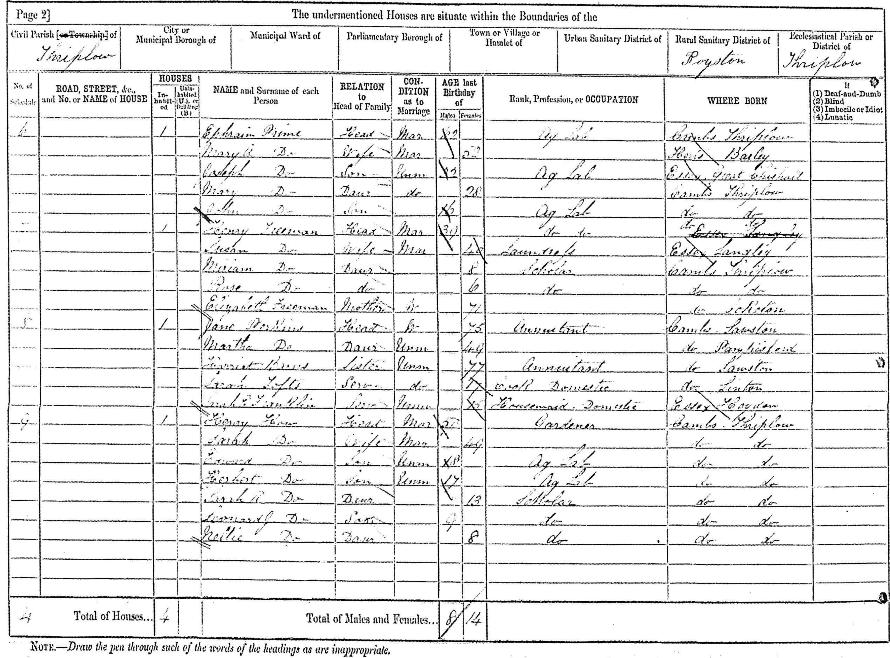 Page 2] The undermentioned Houses are situate within the Boundaries of the
Civil Parish [or Township] of City or Municipal Borough of Municipal Ward of Parliamentary Borough of Town or Village or Hamlet of Urban Sanitary District of Rural Sanitary District of Ecclesiastical Parish or District of
Thriplow Royston Thriplow
No. of Schedule ROAD, STREET, &c., and No. or NAME of HOUSE HOUSES In-habit-ed Unin-habited (U.), or Building (B.) NAME and Surname of each Person RELATION to Head of Family CON-DITION as to Marriage AGE last Birthday of Males Females Rank, Profession, or OCCUPATION WHERE BORN If (1) Deaf-and-Dumb (2) Blind (3) Imbecile or Idiot (4) Lunatic
6 1 Ephraim Prime Head Mar Ag Lab Cambs Thriplow
Mary A Do Wife Mar Herts Barley
Joseph Do Son Unm Ag Lab Essex Great Chishall
Mary Do Daur do 28 Cambs Thriplow
Do Son Ag Lab do do
1 Henry Freeman Head Mar 39 do do do Essex Langley
Susan Do Wife Mar Laundress Essex Langley
Miriam Do Daur 8 Scholar Cambs Thriplow
Rose Do do 6 do do do
Elizabeth Freeman Mother W 71 do
8 1 Jane Perkins Head W 75 Annuitant Cambs Sawston
Martha Do Daur Unm 49 do Pampisford
Sister Unm 77 Annuitant do Sawston
Sarah Tofts Serv do Cook Domestic do Linton
Sarah Franklin Serv Unm Housemaid Domestic Essex Heydon
9 1 Henry How Head Mar Gardener Cambs Thriplow
Sarah Do Wife Mar 49 do do
Edward Do Son Unm 18 Ag Lab do do
Herbert Do Son Unm 17 Ag Lab do do
Sarah A Do Daur 13 Scholar do do
Leonard J Do Son 9 do do do
Nellie Do Daur 8 do do do
4 Total of Houses... 4 Total of Males and Females... 8 14
NOTE.—Draw the pen through such of the words of the headings as are inappropriate.